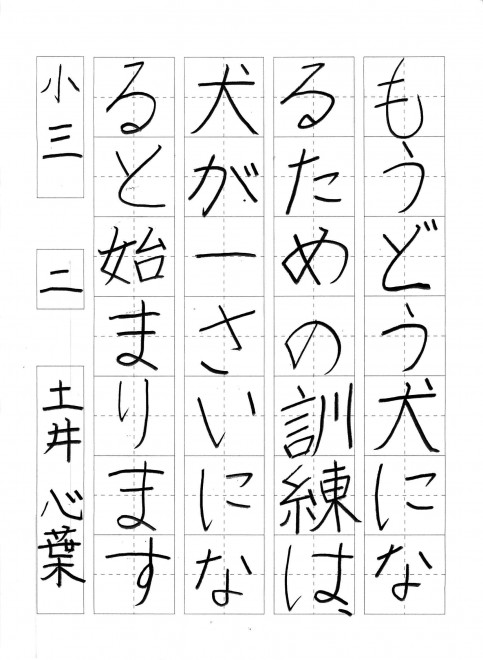 もうどう犬にな
るための訓練は、
犬が一さいにな
ると始まります
小三 二 土井心葉